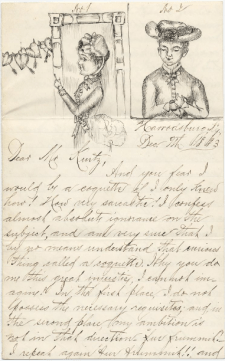 No 1. No 2.
Harrodsburg, Ky.
Dec 7th 1883
Dear Mr Kurtz,
And you fear I
would be a coquette if I only knew
how? How very sarcastic! I confess
almost absolute ignorance on the
subject, and am very sure that I
by no means understand that curious
thing called a coquette. Why you do
me this great injustice I can not im
agine. In the first place, I do not
possess the necessary requisites, and in
the second place my ambition is
not in that direction.
I repeat again and